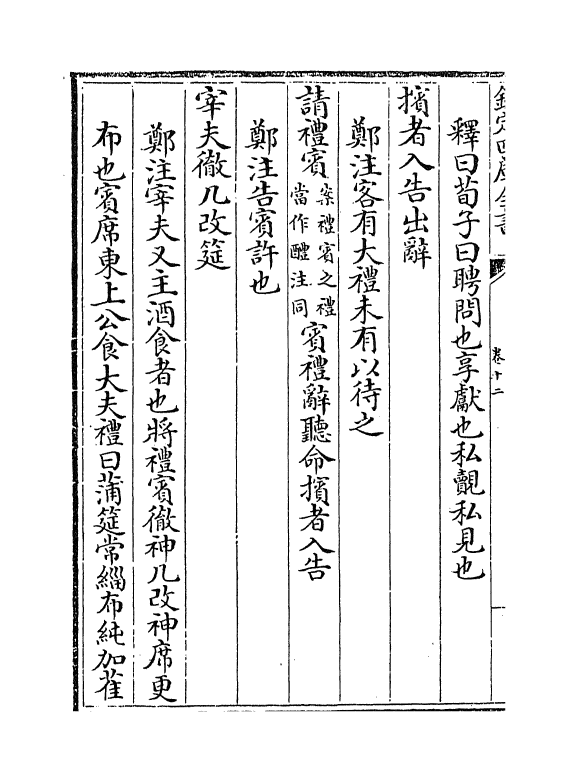 欽定四庫全書
卷十二
釋曰荀子曰聘問也享獻也私覿私見也
擯者入告出辭
鄭注客有大禮未有以待之
請禮賓案禮賓之禮當作醴注同賓禮辭聽命擯者入告
鄭注告賓許也
宰夫徹几改筵
鄭注宰夫又主酒食者也將禮賓徹神几改神席更
布也賓席東上公食大夫禮曰蒲筵常緇布純加萑